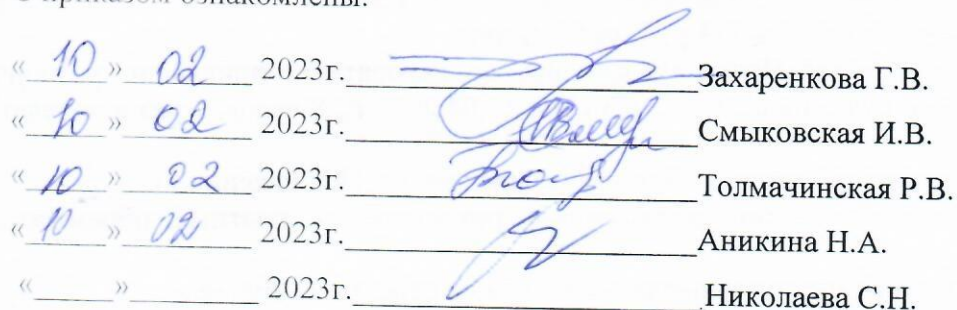 приказом ознакомлены.
«10» 02 2023г. Захаренкова Г.В.
«10» 02 2023г. Смыковская И.В.
«10» 02 2023г. Толмачинская Р.В.
«10» 02 2023г. Аникина Н.А.
«_____»__________ 2023г.__________________________Николаева С.Н.